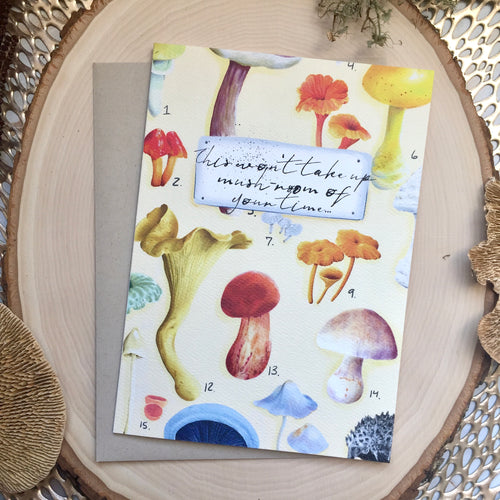 4.
1.
this won't take up
mush-room of
your time...
6.
2.
3.
7.
9.
12.
13.
14.
15.